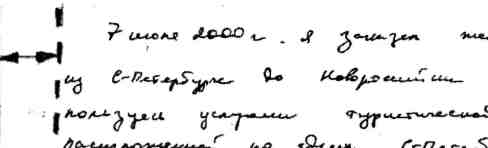 7 июле 2000 г. я заказал
из С-Петербурга до Новороссийска
пользуем услугами туристической
расположенной по адресу С-Петеб